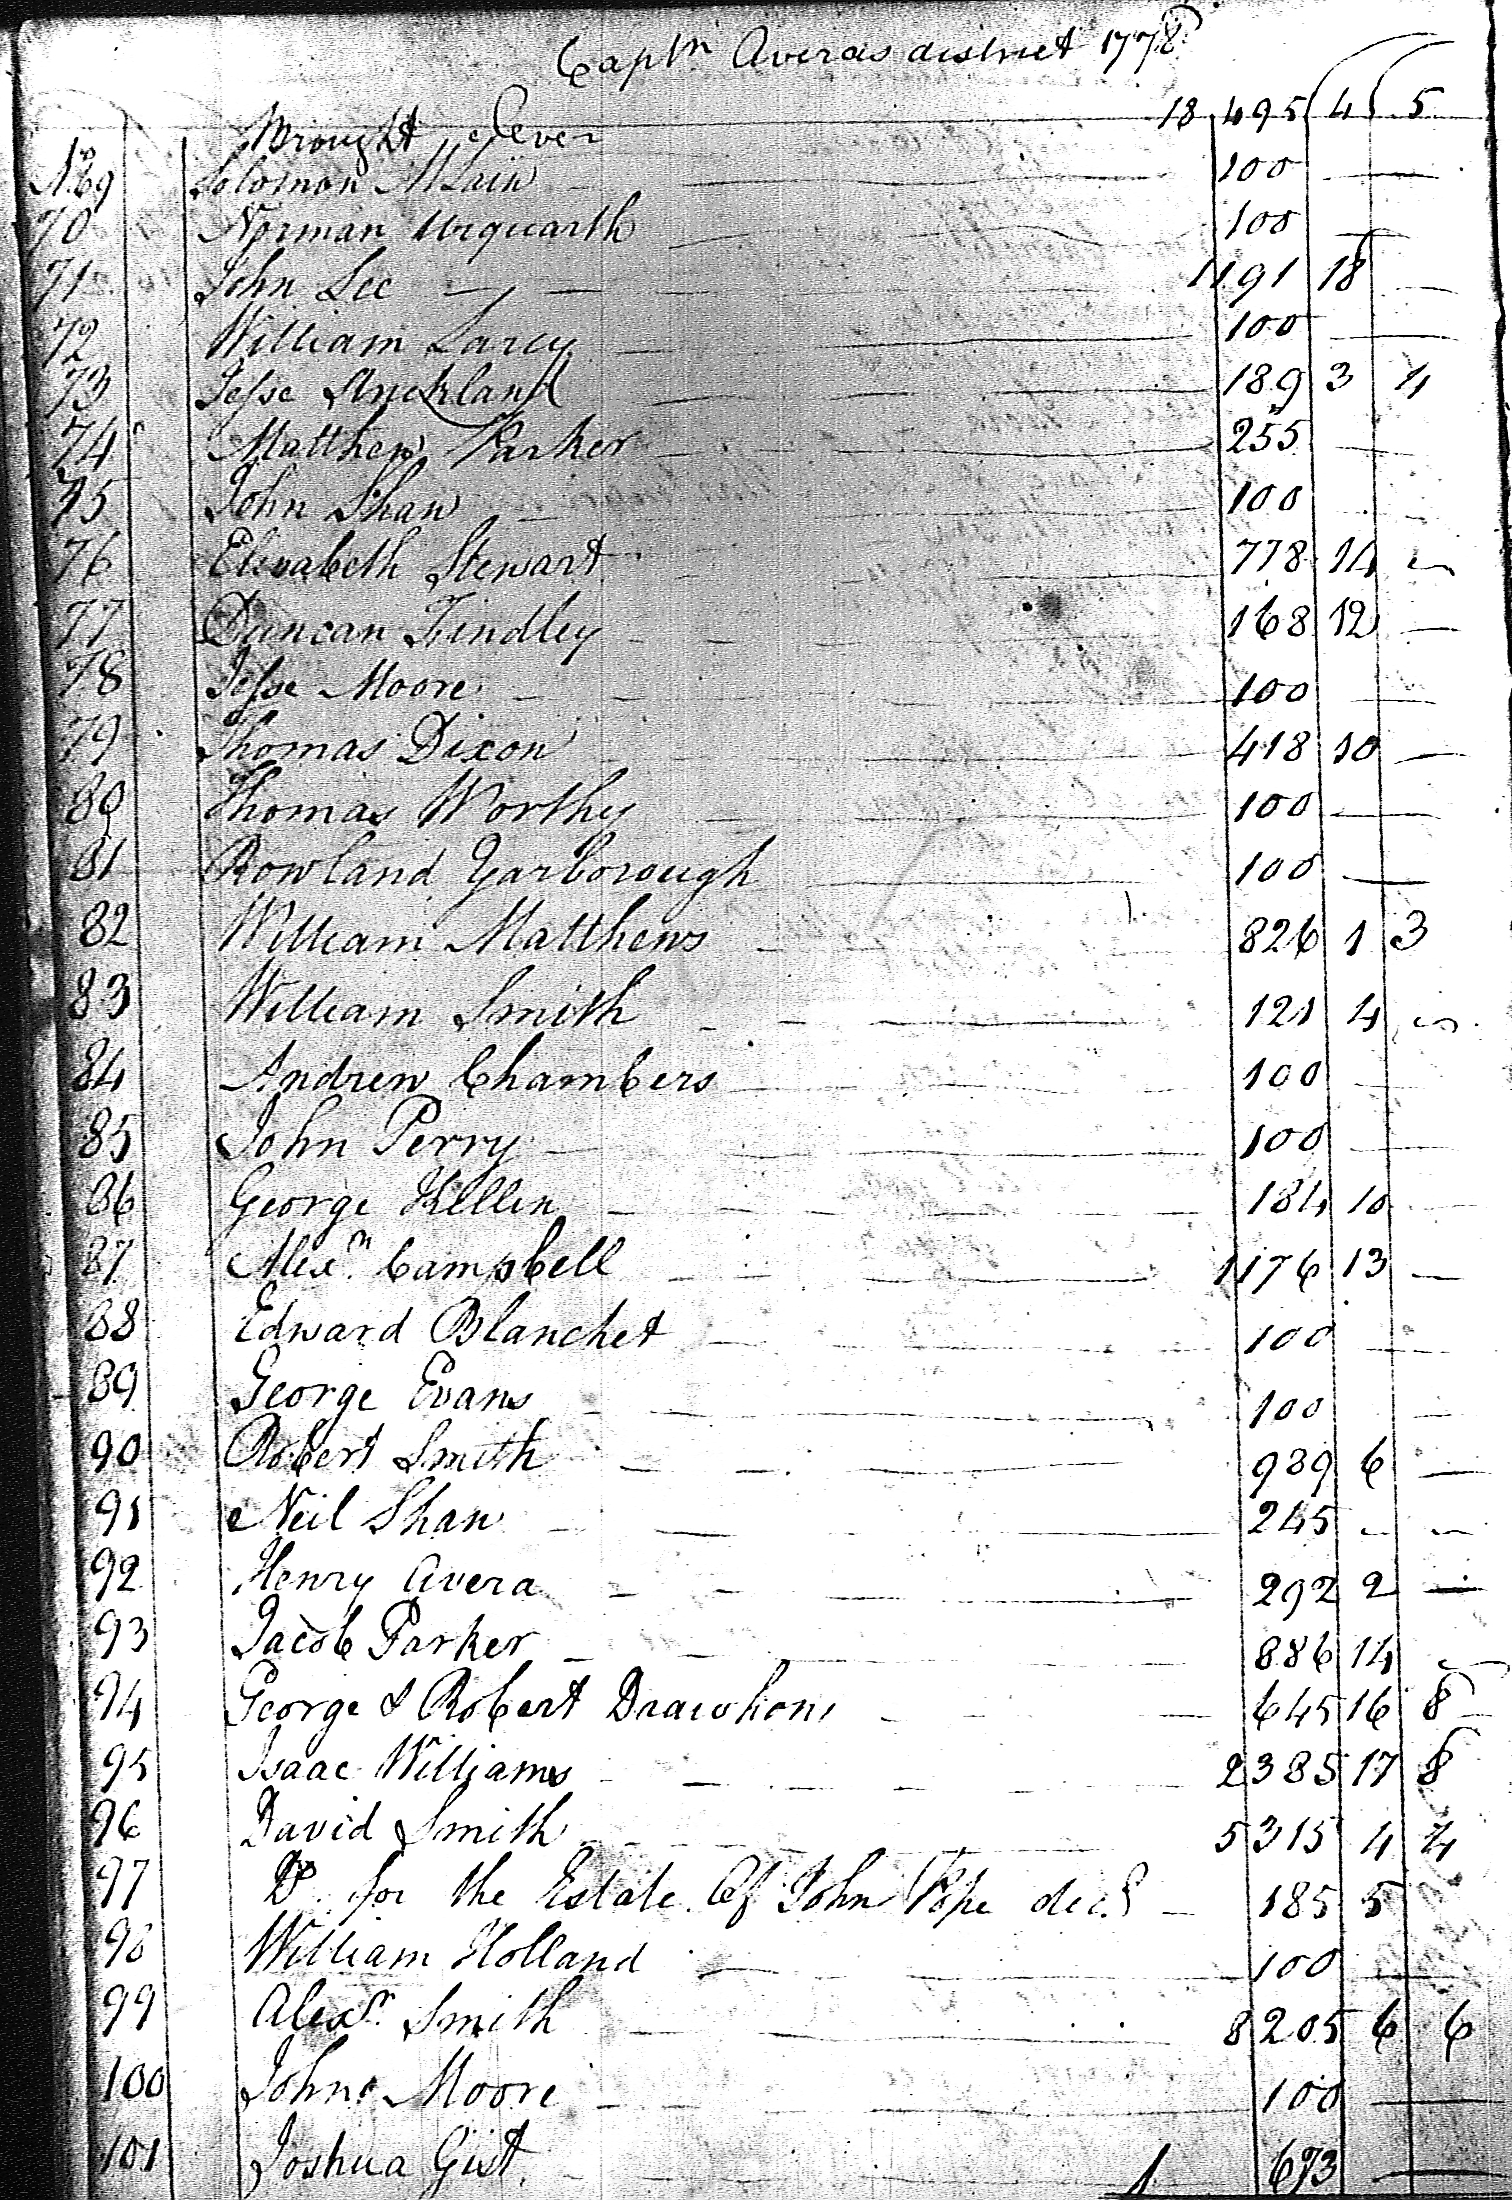 Captn Averas district 1778
Wrought Over 18 495 4 5
No 69 Solomon 100 — —
70 Norman Urquarth 100 —
71 John Lee 1191 18 —
72 William Larcy 100 —
73 Jesse Strickland 189 3 4
74 Matthew Parker 255 —
75 John Shaw 100 —
76 Elizabeth Stewart 778 14 —
77 Duncan Findley 168 12 —
78 Jesse Moore 100 —
79 Thomas Dixon 418 10 —
80 Thomas Worthy 100 —
81 Rowland Yarborough 100 —
82 William Matthews 826 1 3
83 William Smith 121 4 —
84 Andrew Chambers 100 —
85 John Perry 100 —
86 George Killin 184 10 —
87 Alexr Campbell 1176 13 —
88 Edward Blanchet 100 —
89 George Evans 100 —
90 Robert Smith 989 6 —
91 Neil Shaw 245 — —
92 Henry Avera 292 2 —
93 Jacob Parker 886 14 —
94 George & Robert Drawhon 645 16 8
95 Isaac Williams 2385 17 8
96 David Smith 5315 4 4
97 Do for the Estate Of John Pope decd 185 5
98 William Holland 100 —
99 Alexr Smith 8205 6 6
100 John Moore 100 —
101 Joshua Gist 1 673 —